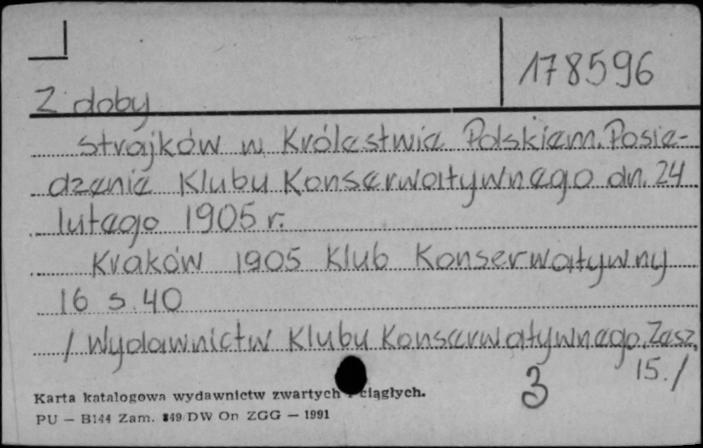 178596
Z doby
strajków w Królestwie Polskiem. Posie-
dzenie Klubu Konserwatywnego dn. 24
lutego 1905 r.
Kraków 1905 Klub Konserwatywny
16 s. 40
/ Wydawnictw Klubu Konserwatywnego. Zesz.
15. /
3
Karta katalogowa wydawnictw zwartych i ciągłych.
PU — B144 Zam. 849 DW On ZGG — 1991